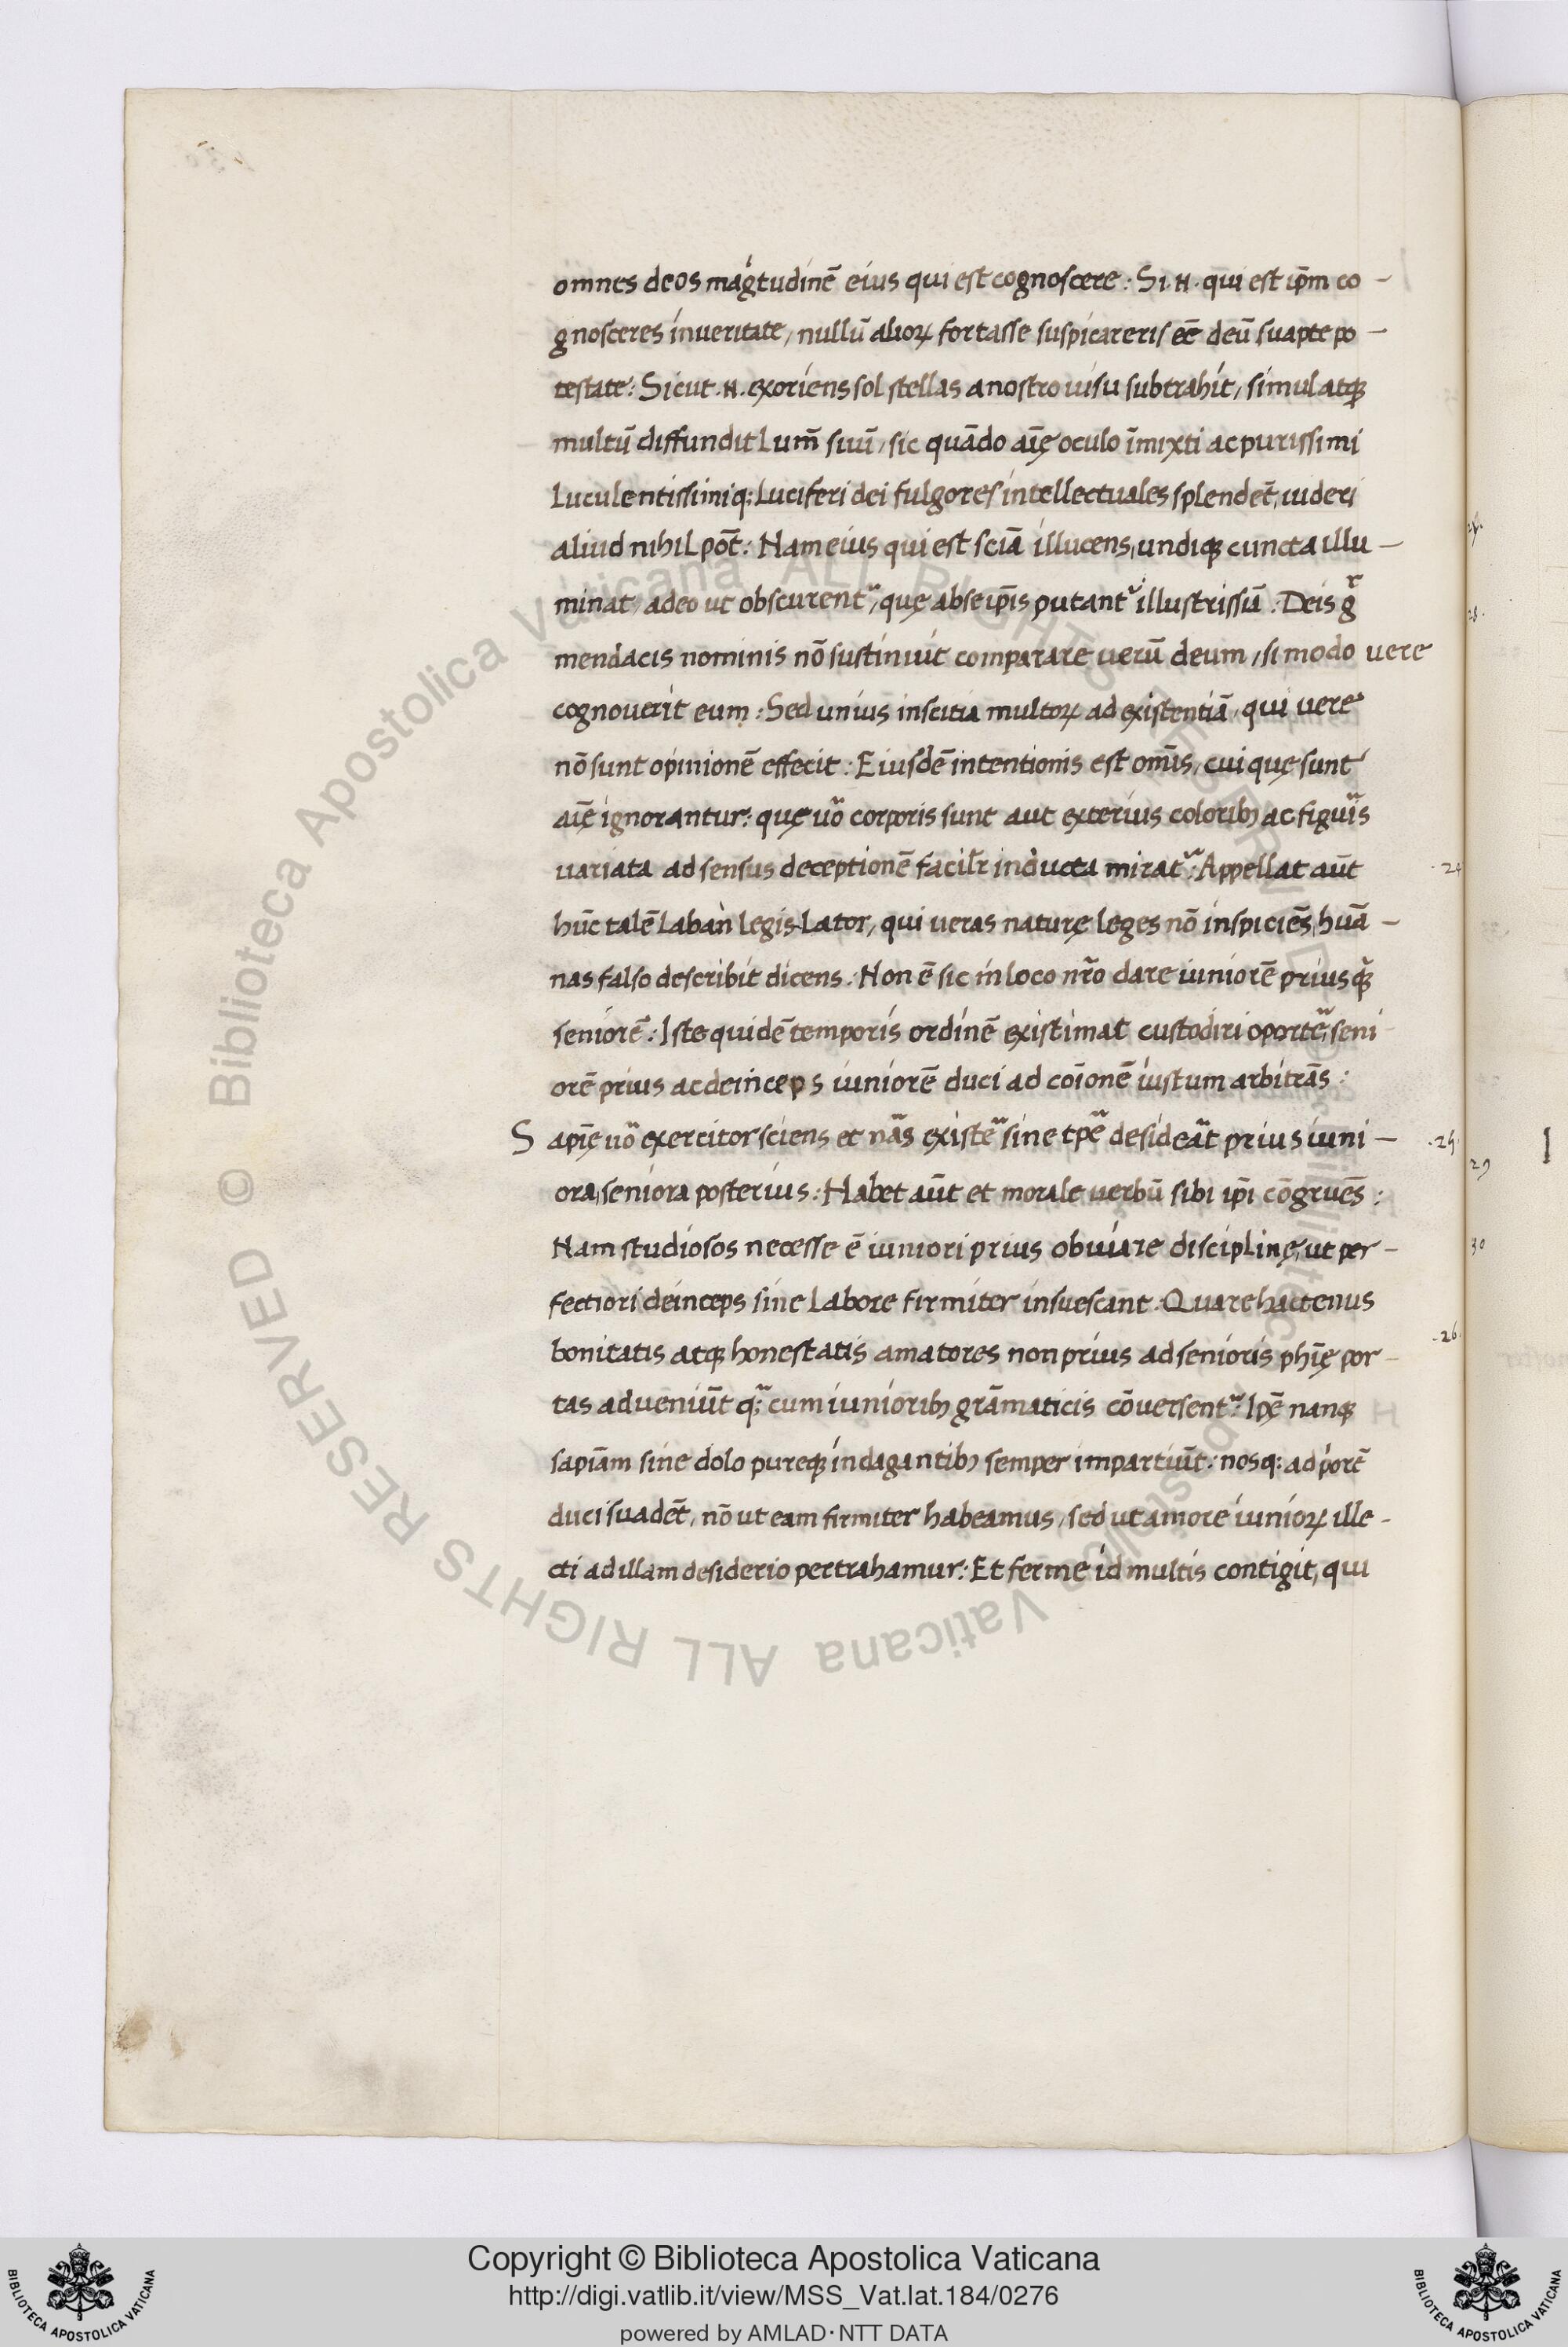 omnes deos mag̍tudinē eius qui est cognoscere : Si .N. qui est ip̄m co-
gnosceres in ueritate, nullū alioꝝ fortasse suspicareris eē deū suapte po-
testate : Sicut .N. exoriens sol stellas a nostro uisu subtrahit, simul atqꝫ
multū diffundit lum̄ suū, sic quādo aīę oculo īmixti ac purissimi
luculentissimiq; luciferi dei fulgores intellectuales splendēt, uideri
aliud nihil pōt : Nam eius qui est sciā illucens, undiqꝫ cuncta illu-
minat, adeo ut obscurentᷣ, quę ab se ip̄is putantᷣ illustrissīā : Deis gͬ
mendacis nominis nō sustinuit comparare uerū deum, si modo uere
cognouerit eum : Sed unius inscitia multoꝝ ad existentiā, qui uere
nō sunt opinionē effecit : Eiusdē intentionis est om̄is, cui quę sunt
aīę ignorantur : quę uō corporis sunt aut exterius coloribꝫ ac figuᷓis
uariata ad sensus deceptionē facilr̄ inducta miratᷣ : Appellat aūt
hūc talē Laban legis lator, qui ueras naturę leges nō inspiciēs, huā-
nas falso describit dicens : Non ē sic in loco nr̄o dare iuniorē priusqᷓꝫ
seniorē : Iste quidē temporis ordinē existimat custodiri oportēᷓ, seni
orē prius ac deinceps iuniorē duci ad coīonē iustum arbitrās :
Sapīę uō exercitor sciens et nāᷓs existēᷓ sine tpēᷓ desideāᷓt prius iuni-
ora, seniora posterius : Habet aūt et morale uerbū sibi ip̄i cōgruēs :
Nam studiosos necesse ē iuniori prius obuiare disciplinę, ut per-
fectiori deinceps sine labore firmiter insuescant : Quare hactenus
bonitatis atqꝫ honestatis amatores non prius ad senioris ph̄ię por-
tas adueniūt q;ᷓ cum iunioribꝫ grāmaticis cōuersentᷣ : Ipę̄ nanqꝫ
sapīam sine dolo pureqꝫ indagantibꝫ semper impartiūt : nosq; ad p̍orē
duci suadēt, nō ut eam firmiter habeamus, sed ut amore iunioꝝ ille-
cti ad illam desiderio pertrahamur : Et ferme id multis contigit, qui
.24
.25.
29
30
.26.
© Biblioteca Apostolica Vaticana ALL RIGHTS RESERVED
Copyright © Biblioteca Apostolica Vaticana
http://digi.vatlib.it/view/MSS_Vat.lat.184/0276
powered by AMLAD·NTT DATA
BIBLIOTECA APOSTOLICA VATICANA
BIBLIOTECA APOSTOLICA VATICANA